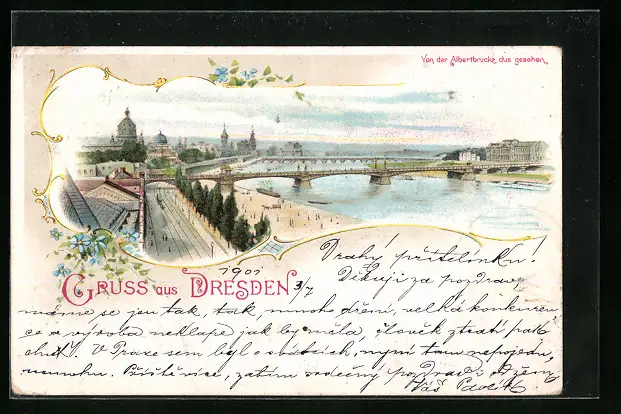 Von der Albertbrücke aus gesehen.
Drahý přítelínku!
1901
Gruss aus Dresden 3/7
Děkuji za pozdrav,
máme se jen tak, tak, mnoho dření, velká konkuren
ce a výroba neklape jak by měla, člověk ztratí pak
chuť. V Praze sem byl o svátcích, nyní tam nepojedu,
nemohu. Příště více, zatím srdečný pozdrav
Váš Pavlík